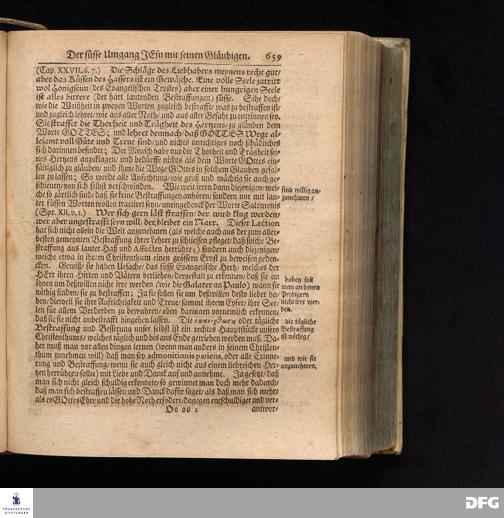 Der süsse Umgang JEsu mit seinen Gläubigen. 659
(Cap. XXVII, 6. 7.) Die Schläge des Liebhabers meynens recht gut/
aber das Küssen des Hassers ist ein Gewäsche. Eine volle Seele zutritt
wol Honigseim (des Evangelischen Trostes) aber einer hungrigen Seele
ist alles bittere (der hart lautenden Bestraffungen) süsse. Sihe doch/
wie die Weißheit in zweyen Worten zugleich bestrafft/ was zu bestraffen ist/
und zugleich lehret/ wie aus aller Noth/ und aus aller Gefahr zu entrinnen sey.
Sie straffet die Thorheit und Trägheit des Hertzens/ zu gläuben dem
Worte GOTTES; und lehret demnach/ daß GOTTES Wege al-
lesamt voll Güte und Treue sind/ und nichts untüchtiges noch schädliches
sich darinnen befindet; Der Mensch habe nur die Thorheit und Trägheit sei-
nes Hertzens anzuklagen/ und bedürffe nichts als dem Worte GOttes ein-
fältiglich zu gläuben/ und ihme die Wege GOttes in solchem Glauben gefal-
len zu lassen; So werde alle Anfechtung/ wie groß und mächtig sie auch ge-
schienen/ von sich selbst verschwinden. Wie weit irren dann diejenigen/ wel-
che so zärtlich sind/ daß sie keine Bestraffungen anhören/ sondern nur mit lau-
ter süssen Worten wollen tractiret seyn/ uneingedenck der Worte Salomonis
(Spr. XII, v. 1.) Wer sich gern läst straffen/ der wird klug werden/
wer aber ungestrafft seyn will/ der bleibet ein Narr. Dieser Lection
hat sich nicht allein die Welt anzunehmen (als welche auch aus der zum aller-
besten gemeynten Bestraffung ihrer Lehrer zu schliessen pfleget/ daß solche Be-
straffung aus lauter Haß und Affecten herrühre;) sondern auch diejenigen/
welche etwa in ihrem Christenthum einen grössern Ernst zu beweisen geden-
cken. Gewiß/ sie haben Ursache/ das süsse Evangelische Hertz/ welches der
HErr ihren Hirten und Vätern verliehen/ dergestalt zu erkennen/ daß sie an
ihnen um deßwillen nicht irre werden (wie die Galater an Paulo) wann sie
nöthig finden/ sie zu bestraffen; Ja sie sollen sie um deßwillen desto lieber ha-
ben/ dieweil sie ihre Aufrichtigkeit und Treue/ sammt ihrem Eyfer/ ihre See-
len für allem Verderben zu bewahren/ eben darinnen vornemlich erkennen/
daß sie sie nicht unbestrafft hingehen lassen. Die oder tägliche
Bestraffung und Besserung unser selbst ist ein rechtes Hauptstück unsers
Christenthums/ welches täglich und bis ans Ende getrieben werden muß. Da-
her muß man vor allen dingen lernen (wenn man anders in seinem Christen-
thum zunehmen will) daß man sey admonitionis patiens, oder alle Erinne-
rung und Bestraffung/ wenn sie auch gleich nicht aus einem liebreichen Her-
tzen herrühren sollte/ mit Liebe und Danck auf und annehme. Ja gesetzt/ daß
man sich nicht gleich schuldig erkennete/ so gewinnet man doch mehr dadurch/
daß man sich bestraffen lässet/ und Danck dafür saget/ als daß man sich mehr/
als es GOttes Ehre und die hohe Noth erfodert/ dagegen entschuldiget und ver-
Oo oo 2 antwor-
sind willig an-
zunehmen/
dabey soll
man an denen
Predigern
nicht irre wer-
den.
die tägliche
Bestraffung
ist nöthig/
und wie sie
anzunehmen.
FRANCKESCHE
STIFTUNGEN
DFG